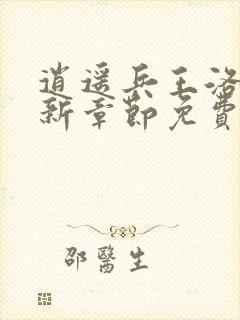 逍遥兵王洛
新章節免費
邵醫生